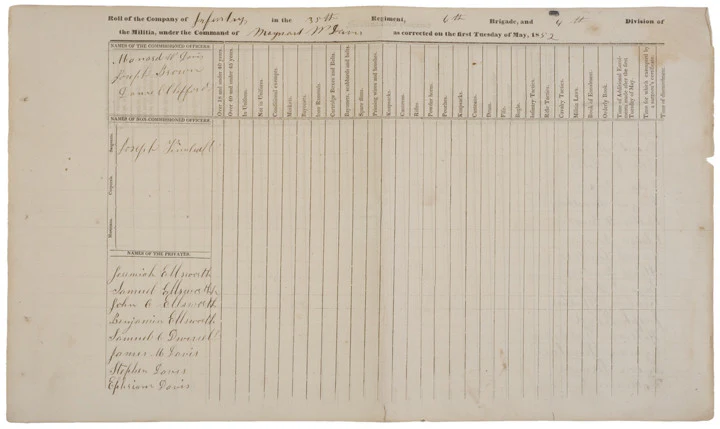 Roll of the Company of Infantry, in the 35th Regiment, 6th Brigade, and 4th Division of
the Militia, under the Command of Maynard W Davis as corrected on the first Tuesday of May, 1852
NAMES OF THE COMMISSIONED OFFICERS.
Maynard W Davis
Joseph Brown
Daniel Clifford
Over 18 and under 40 years.
Over 40 and under 45 years.
In Uniform.
Not in Uniform.
Conditional exempts.
Muskets.
Bayonets.
Iron Ramrods.
Cartridge Boxes and Belts.
Bayonet, scabbards and belts.
Spare flints.
Priming wires and brushes.
Knapsacks.
Canteens.
Rifles.
Powder horns.
Pouches.
Knapsacks.
Canteens.
Drum.
Fife.
Bugle.
Infantry Tactics.
Rifle Tactics.
Cavalry Tactics.
Militia Laws.
Book of Enrolment.
Orderly Book.
Tuesday of May.
Time for which exempted by
a surgeon's certificate.
Time of discontinuance.
NAMES OF NON-COMMISSIONED OFFICERS.
Sergeants.
Joseph
Corporals.
Musicians.
NAMES OF THE PRIVATES.
Jeremiah Ellsworth
Samuel Ellsworth
John C Ellsworth
Benjamin Ellsworth
Samuel C
James M Davis
Stephen Davis
Ephriam Davis